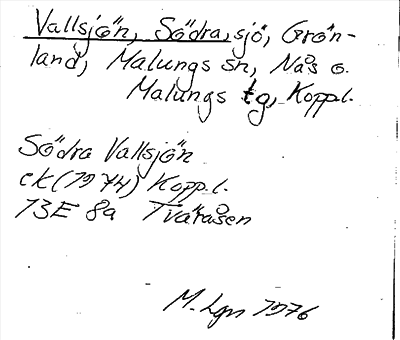 Vallsjön, Södra, sjö, Grön-
land, Malungs sn, Nås o.
Malungs tg, Kopp.l.
Södra Vallsjön
ek (1974) Kopp.l.
13E 8a Tväråsen
M. Lgn 1976